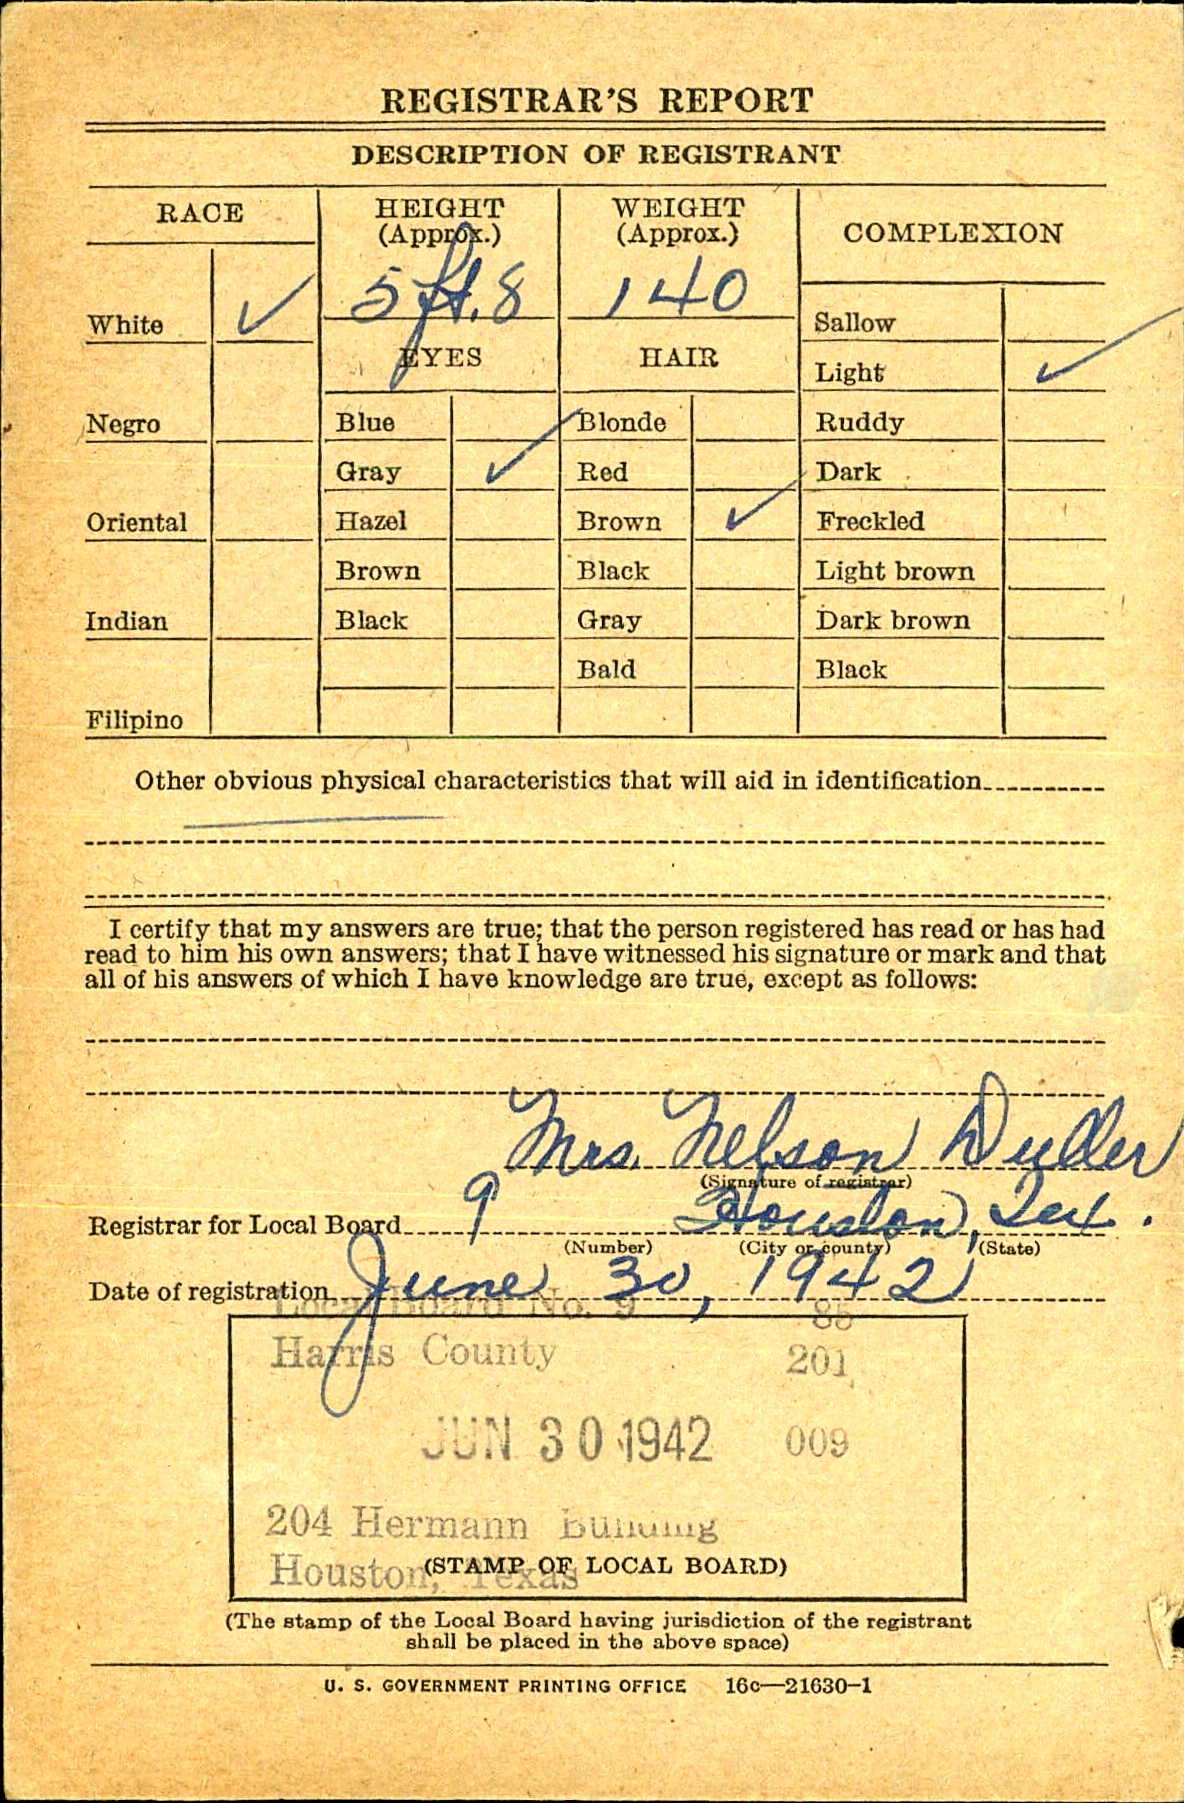 REGISTRAR'S REPORT
DESCRIPTION OF REGISTRANT
RACE
HEIGHT
(Approx.)
WEIGHT
(Approx.)
COMPLEXION
5 ft. 8
140
White ✓
Sallow
EYES
HAIR
Light ✓
Negro
Blue
Blonde
Ruddy
Gray ✓
Red
Dark
Oriental
Hazel
Brown ✓
Freckled
Brown
Black
Light brown
Indian
Black
Gray
Dark brown
Bald
Black
Filipino
Other obvious physical characteristics that will aid in identification
I certify that my answers are true; that the person registered has read or has had
read to him his own answers; that I have witnessed his signature or mark and that
all of his answers of which I have knowledge are true, except as follows:
Mrs. Nelson Duller
(Signature of registrar)
Registrar for Local Board 9 Houston, Tex.
(Number) (City or county) (State)
Date of registration June 30, 1942
Local Board No. 9 85
Harris County 201
JUN 30 1942 009
204 Hermann Building
Houston, Texas
(STAMP OF LOCAL BOARD)
(The stamp of the Local Board having jurisdiction of the registrant
shall be placed in the above space)
U. S. GOVERNMENT PRINTING OFFICE 16c—21630-1